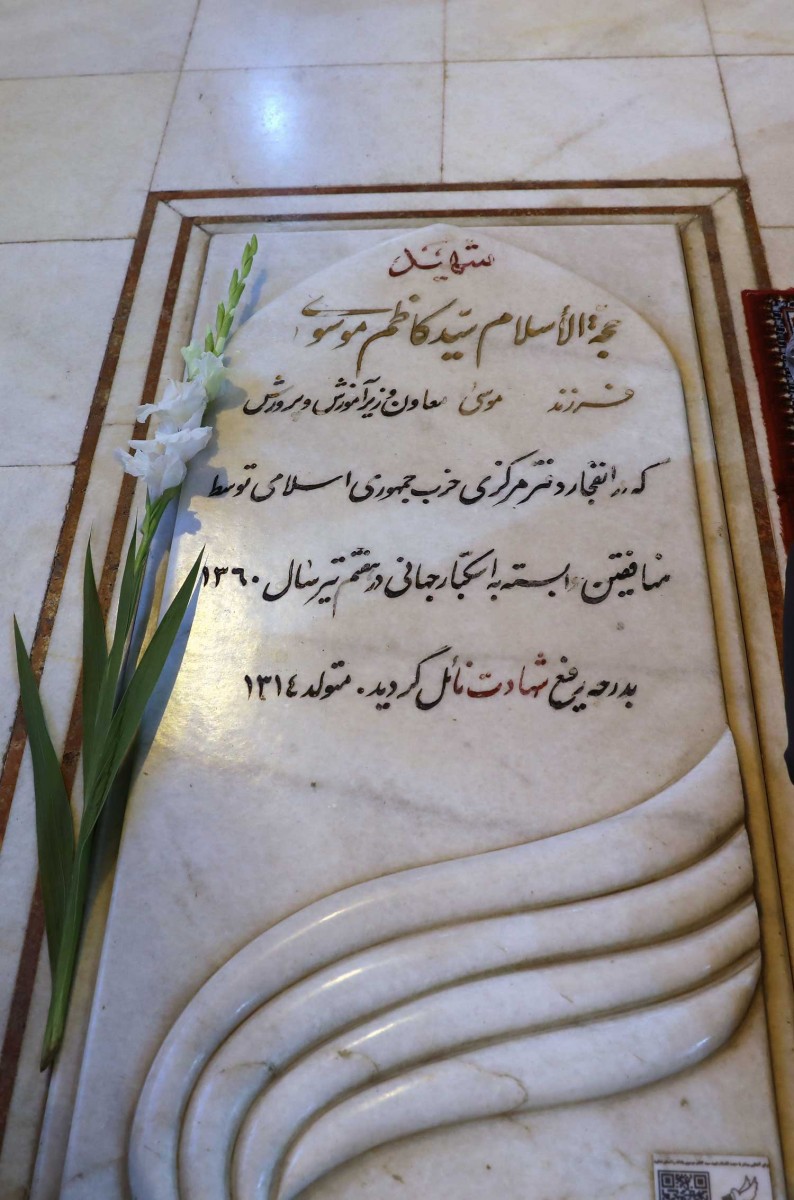 شهید
حجة الأسلام سیّد کاظم موسوی
فرزند موسیٰ معاون وزیر آموزش و پرورش
که در انفجار دفتر مرکزی حزب جمهوری اسلامی توسط
منافقین وابسته به استکبار جهانی در هفتم تیر سال ١٣٦٠
بدرجه رفیع شهادت نائل گردید. متولد ١٣١٤